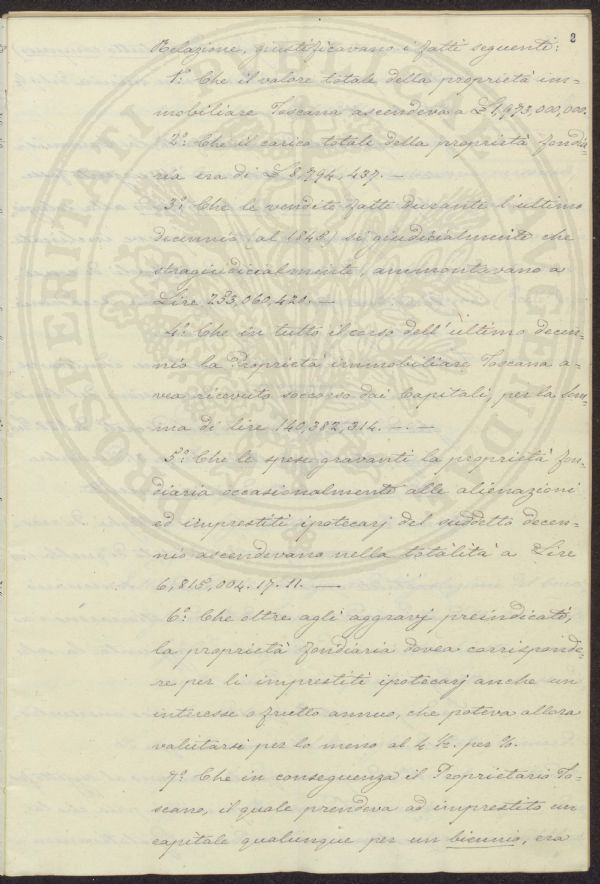 2
Relazione, giustificavano i fatti seguenti:
1.º Che il valore totale della proprietà im=
mobiliare Toscana ascendeva a £ 1,973,000,000.
2.º Che il carico totale della proprietà fondia=
ria era di £ 8,794,437. —
3.º Che le vendite fatte durante l'ultimo
decennio (al 1848) sì giudicialmente che
stragiudicialmente, ammontavano a
Lire 233,060,420. —
4.º Che in tutto il corso dell'ultimo decen=
nio la Proprietà immobiliare Toscana a=
vea ricevuto soccorso dai Capitali, per la Som=
ma di lire 140,382,314. — . —
5.º Che le spese gravanti la proprietà fon=
diaria occasionalmente alle alienazioni
ed imprestiti ipotecarj del suddetto decen=
nio ascendevano nella totalità a Lire
6,816,004. 17. 11. —
6.º Che oltre agli aggravj preindicati,
la proprietà fondiaria dovea corrisponde=
re per li imprestiti ipotecarj anche un
interesse o frutto annuo, che poteva allora
valutarsi per lo meno al 4 ½. per %.
7.º Che in conseguenza il Proprietario To=
scano, il quale prendeva ad imprestito un
capitale qualunque per un biennio, era
PROSPERITATI PUBLICAE AUGENDAE